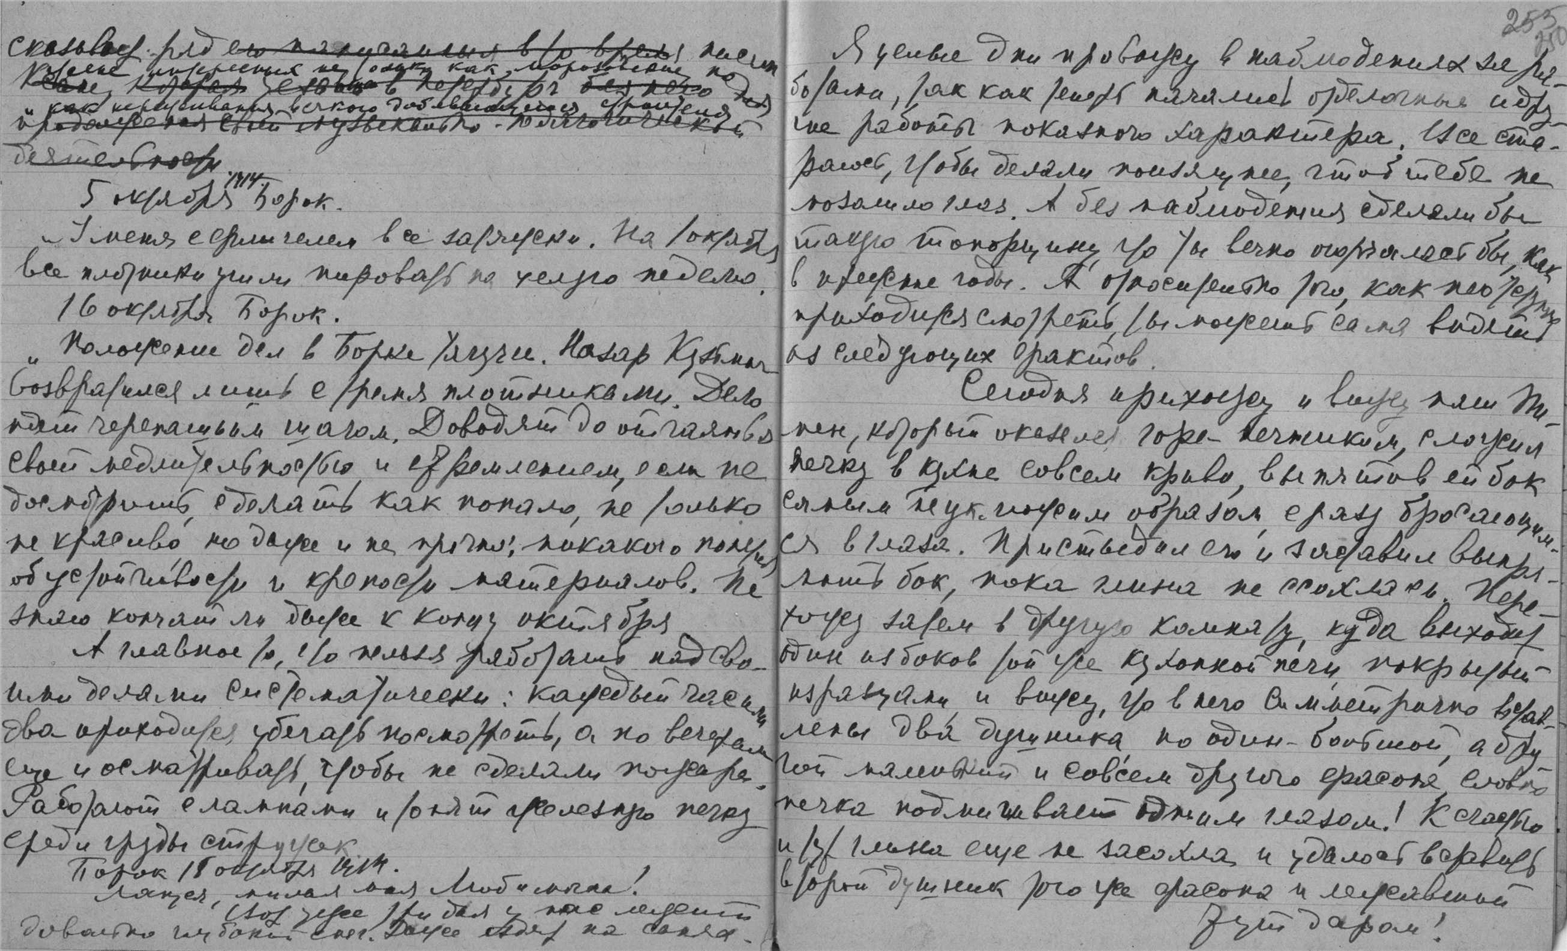 сказывал ряд
5 октября 1914. Борок.
„У меня с флигелем все запуски. На 1 октября
все плотники ушли пировать на целую неделю.
16 октября Борок.
„Положение дел в Борке Назар Кузьмич
возвратился лишь с тремя плотниками. Дело
идет черепашьим шагом. Доводят до отчаянья
своей медлительностью и стремлением, если не
досмотришь, сделать как попало, не только
не красиво но даже и не прочно: никакого понятия
об устойчивости и крепости материалов. Не
знаю кончат ли даже к концу октября
А главное то, что нельзя работать над сво-
ими делами систематически: каждый час или
два приходится убегать посмотреть, а по вечерам
еще и осматривать, чтобы не сделали пожара.
Работают с лампами и топят железную печку
среди груды стружек
Борок 18 октября 1914.
милая моя Любимочка!
Вот уже три дня у нас лежит
довольно глубокий снег. Даже ездят на санях.
255
Я целые дни провожу в наблюдениях за ра-
ботами, так как теперь начались отделочные и дру-
гие работы показного характера. Все ста-
раюсь, чтобы делали поизящнее, чтоб тебе не
мозолило глаз. А без наблюдения сделали бы
такую топорщину, что ты вечно огорчалась бы, как
в прежние годы. А относительно того, как
приходится смотреть, ты можешь сама видеть
из следующих фактов.
Сегодня прихожу и вижу наш Пи-
мен, который оказался горе-печником, сложил
печку в кухне совсем криво, выпятив ей бок
самым неуклюжим образом, сразу бросающим-
ся в глаза. Пристыдил его и заставил выпра-
мить бок, пока глина не ссохлась. Пере-
хожу затем в другую комнату, куда выходит
один из боков той же кухонной печи, покрытый
изразцами и вижу, что в него симметрично встав-
лены два душника но один-большой, а дру-
гой маленький и совсем другого фасона, словно
печка подмигивает одним глазом! К счастью
и тут глина еще не засохла и удалось вставить
второй душник того же фасона и лежавший
тут даром!